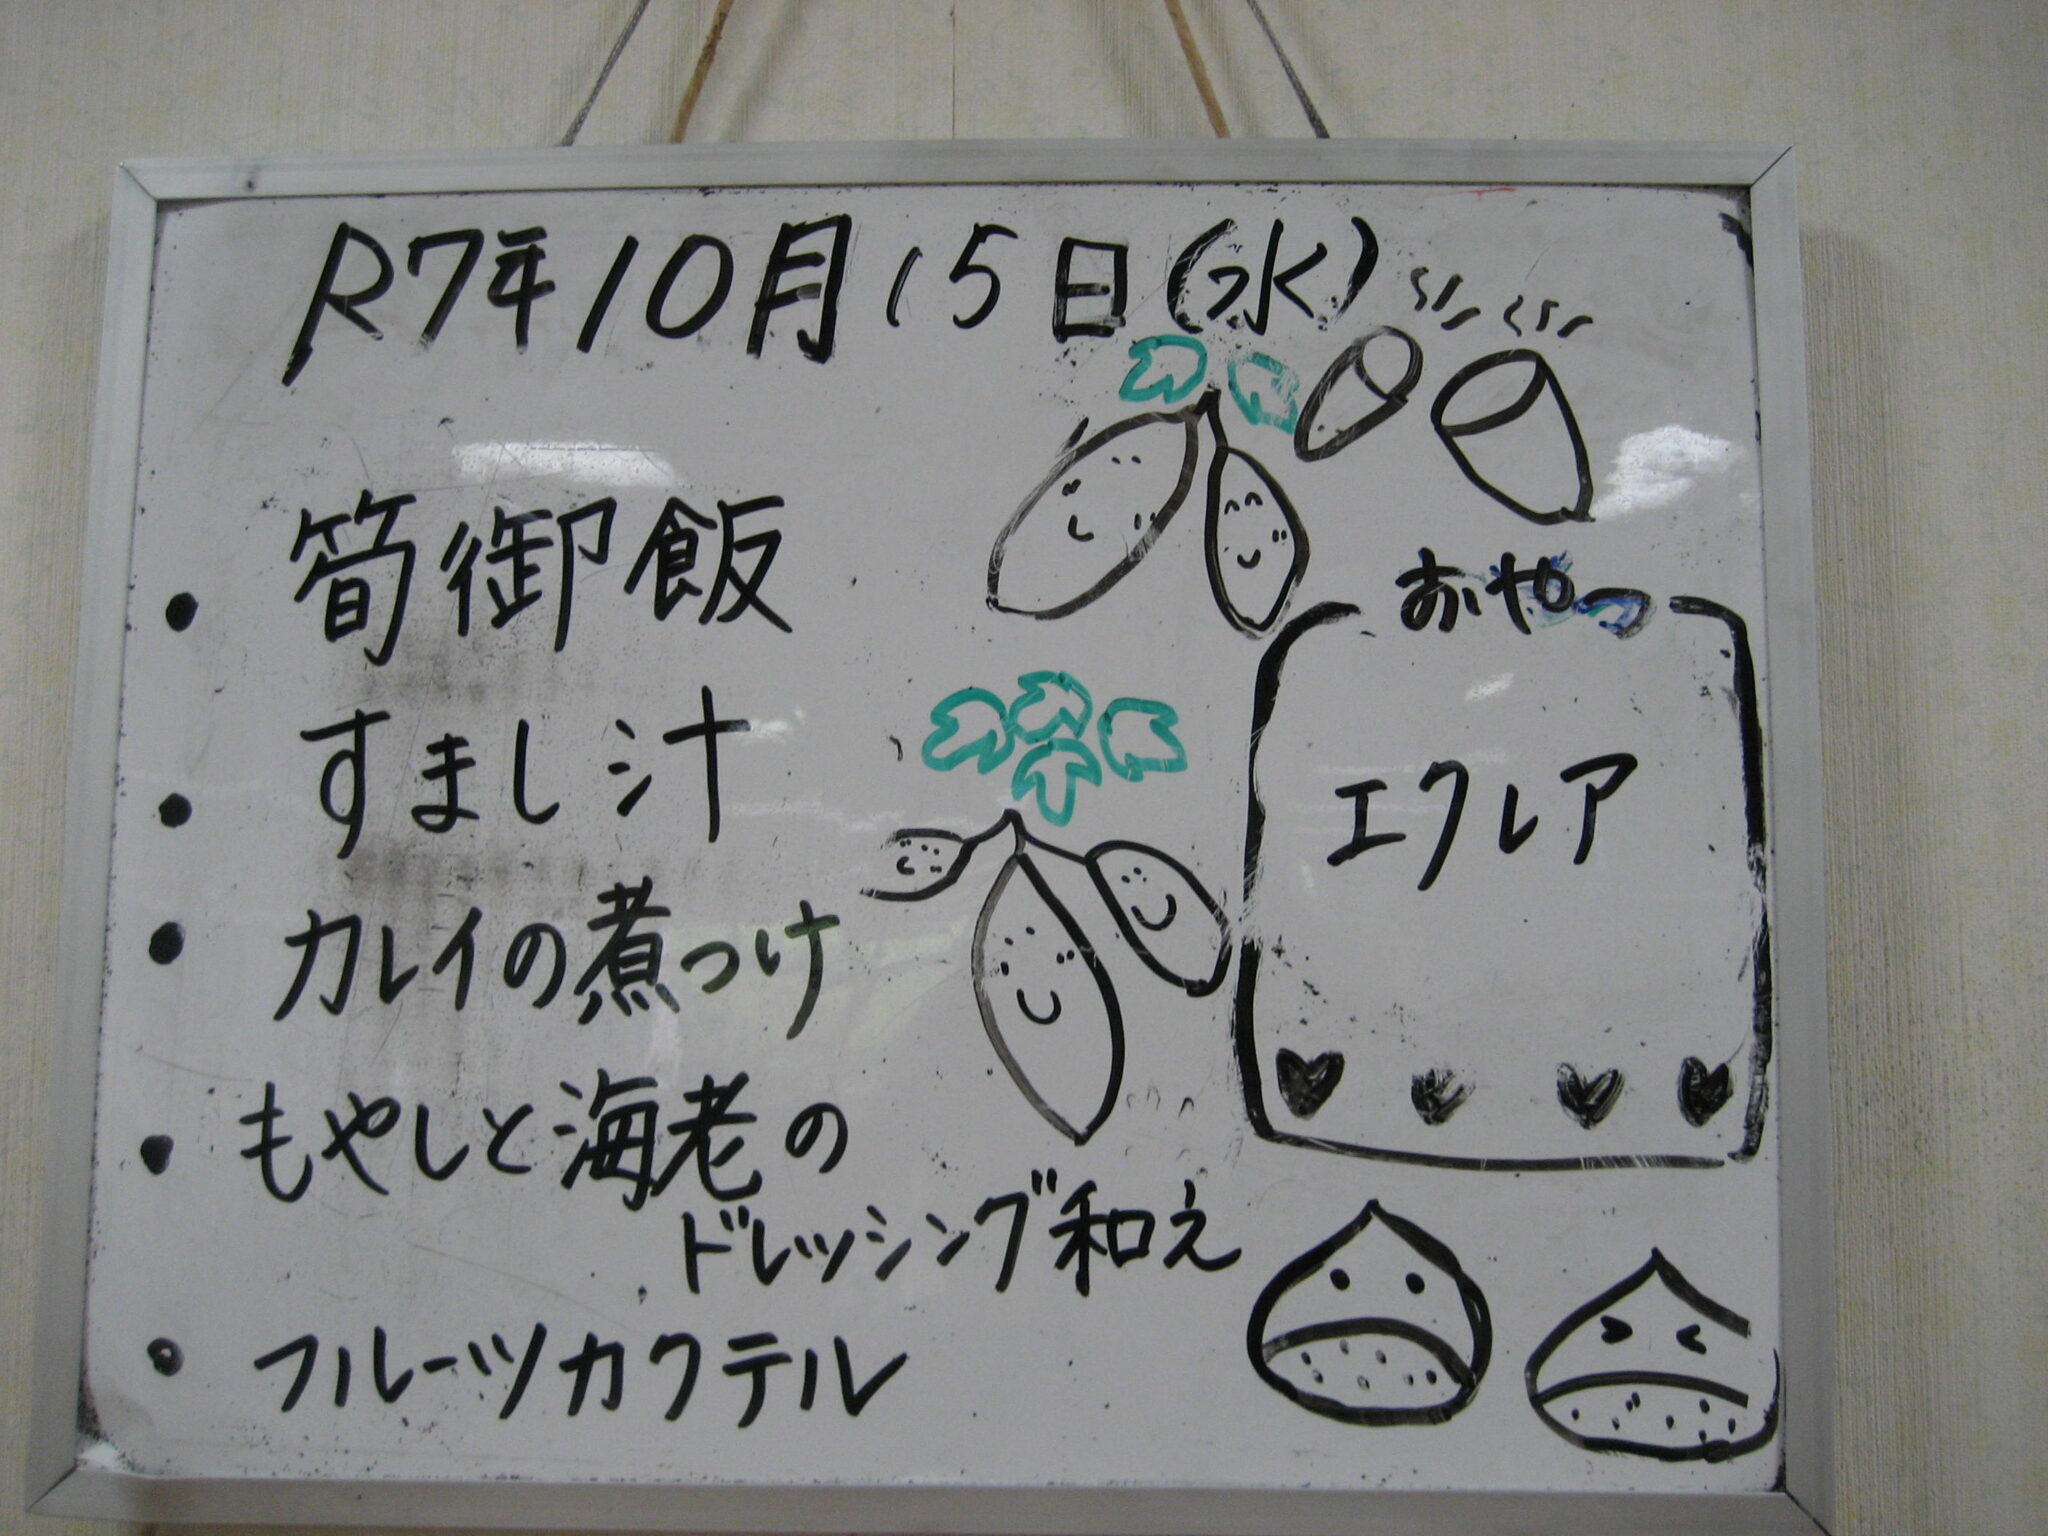 R7年10月15日(水)
・筍御飯
・すまし汁
・カレイの煮つけ
・もやしと海老の
ドレッシング和え
・フルーツカクテル
おやつ
エクレア